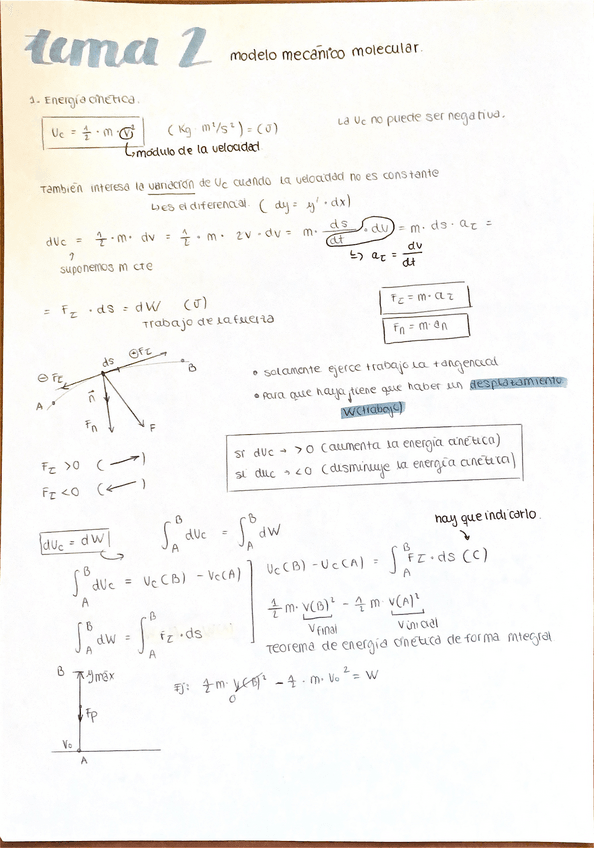 tema 2 modelo mecánico molecular.
1- Energía cinética.
Uc = 1/2 · m · v² (Kg · m²/s²) = (J) La Uc no puede ser negativa.
↳ módulo de la velocidad
También interesa la variación de Uc cuando la velocidad no es constante
↳ es el diferencial. (dy = y' · dx)
dUc = 1/2 · m · dv = 1/2 · m · 2v · dv = m · ds/dt · dv = m · ds · aτ =
↳ aτ = dv/dt
suponemos m cte
= Fτ · ds = dW (J)
Trabajo de la fuerza
Fτ = m · aτ
Fn = m · an
ds ⊕Fτ B
⊖ Fτ
A n Fn F
• solamente ejerce trabajo la tangencial
• para que haya tiene que haber un desplazamiento
W(trabajo)
Fτ > 0 ( → )
Fτ < 0 ( ← )
si dUc → > 0 (aumenta la energía cinética)
si dUc → < 0 (disminuye la energía cinética)
dUc = dW ∫_A^B dUc = ∫_A^B dW
hay que indicarlo.
∫_A^B dUc = Uc(B) - Uc(A)
Uc(B) - Uc(A) = ∫_A^B Fτ · ds (C)
∫_A^B dW = ∫_A^B Fτ · ds
1/2 m · v(B)² - 1/2 m · v(A)²
Vfinal Vinicial
Teorema de energía cinética de forma integral
B ymáx
Fp
V0
A
Ej: 1/2 m · v(B)² - 1/2 · m · V0² = W
0